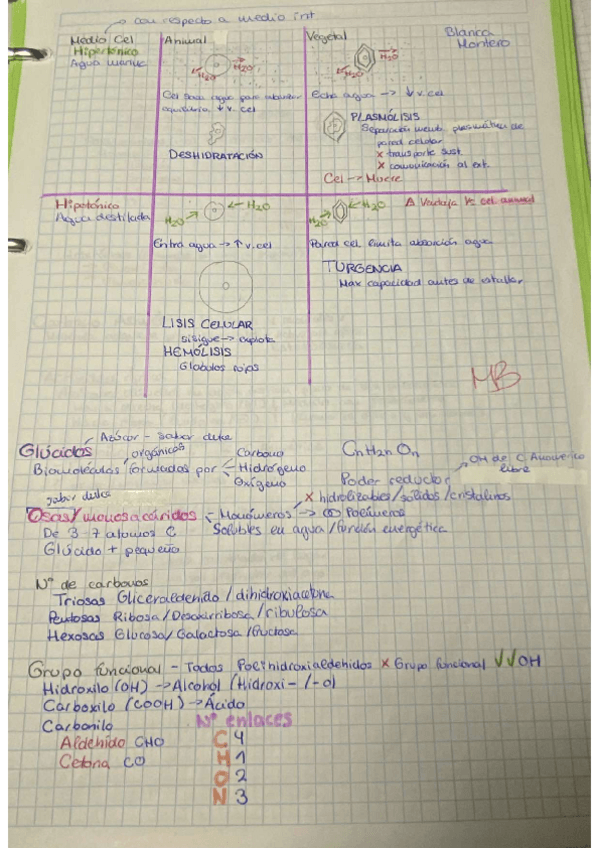 con respecto a medio int
Medio Cel
Hipertónico
Agua marina
Animal
H2O
H2O
Cel saca agua para
equilibrio ↓ v. cel
DESHIDRATACIÓN
Vegetal
H2O
H2O
Echa agua → ↓ v. cel
PLASMÓLISIS
Separación memb. plasmática de
pared celular
x transporte sust
x comunicación al ext.
Cel → Muere
Blanca
Montero
Hipotónico
Agua destilada
H2O
← H2O
Entra agua → ↑ v. cel
LISIS CELULAR
si sigue → explota
HEMÓLISIS
Glóbulos rojos
H2O
H2O
Δ Ventaja Vs cel animal
Pared cel limita absorción agua
TURGENCIA
Max capacidad antes de estallar
MB
Azúcar - sabor dulce
Glúcidos
orgánicas
Biomoléculas formadas por
Carbono
Hidrógeno
Oxígeno
CnH2nOn
Poder reductor
OH de C Anomérico
libre
sabor dulce
Osas/monosacáridos - Monómeros → Polímeros
x hidrolizables/sólidos/cristalinos
De 3-7 átomos C
Solubles en agua/función energética
Glúcido + pequeño
Nº de carbonos
Triosas Gliceraldehido/dihidroxiacetona
Pentosas Ribosa/Desoxirribosa/ribulosa
Hexosas Glucosa/Galactosa/fructosa
Grupo funcional - Todos Polihidroxialdehidos x Grupo funcional ✓✓OH
Hidroxilo (OH) → Alcohol (Hidroxi- /-ol)
Carboxilo (COOH) → Ácido
Carbonilo
Aldehido CHO
Cetona CO
Nº enlaces
C 4
H 1
O 2
N 3